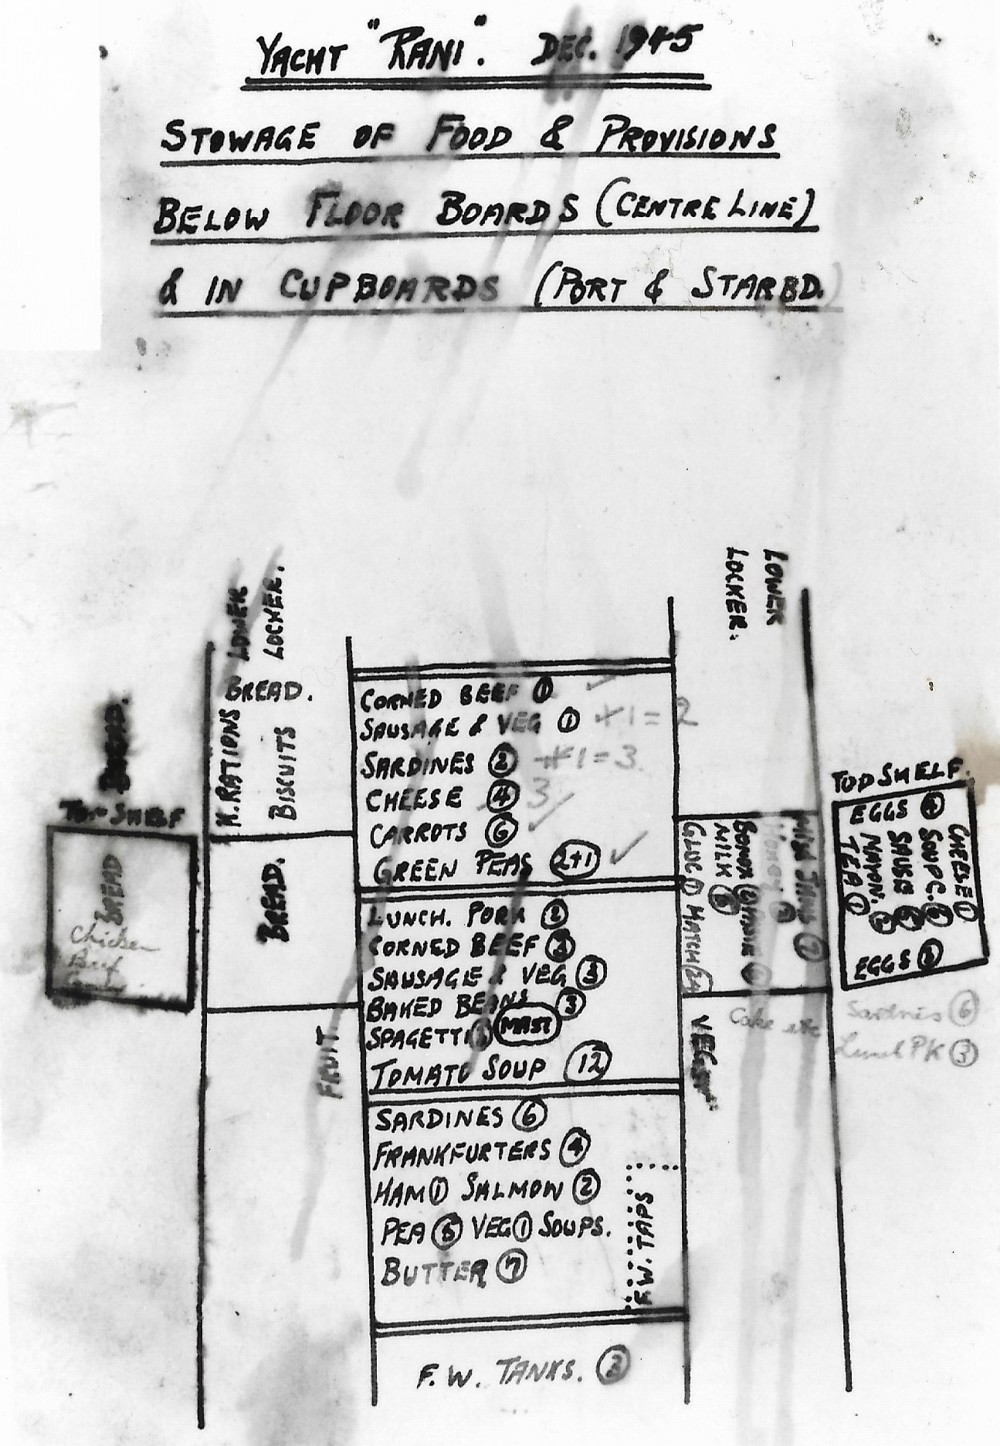 YACHT "RANI". DEC. 1945
STOWAGE OF FOOD & PROVISIONS
BELOW FLOOR BOARDS (CENTRE LINE)
& IN CUPBOARDS (PORT & STARBD.)
BREAD.
TOP SHELF
BREAD
Chicken
Beef
LOWER
LOCKER.
BREAD.
K. RATIONS
BISCUITS
BREAD.
FRUIT
CORNED BEEF 1 ✓
SAUSAGE & VEG 1 +1=2
SARDINES 2 +1=3.
CHEESE 4 3
CARROTS 6 ✓
GREEN PEAS 2+1 ✓
LUNCH. PORK 2
CORNED BEEF 3
SAUSAGE & VEG 3
BAKED BEANS 3
SPAGETTI MAST
TOMATO SOUP 12
SARDINES 6
FRANKFURTERS 4
HAM 1 SALMON 2
PEA VEG 1 SOUPS.
BUTTER 7
F.W. TAPS
F.W. TANKS. 2
LOWER
LOCKER.
MILK
GLUC 1 MATCH
Cake etc
VEG
TOP SHELF.
EGGS
CHEESE 1
SOUP C.
SAUSG
MAYON.
TEA 1
EGGS
Sardines 6
Lunch PK 3